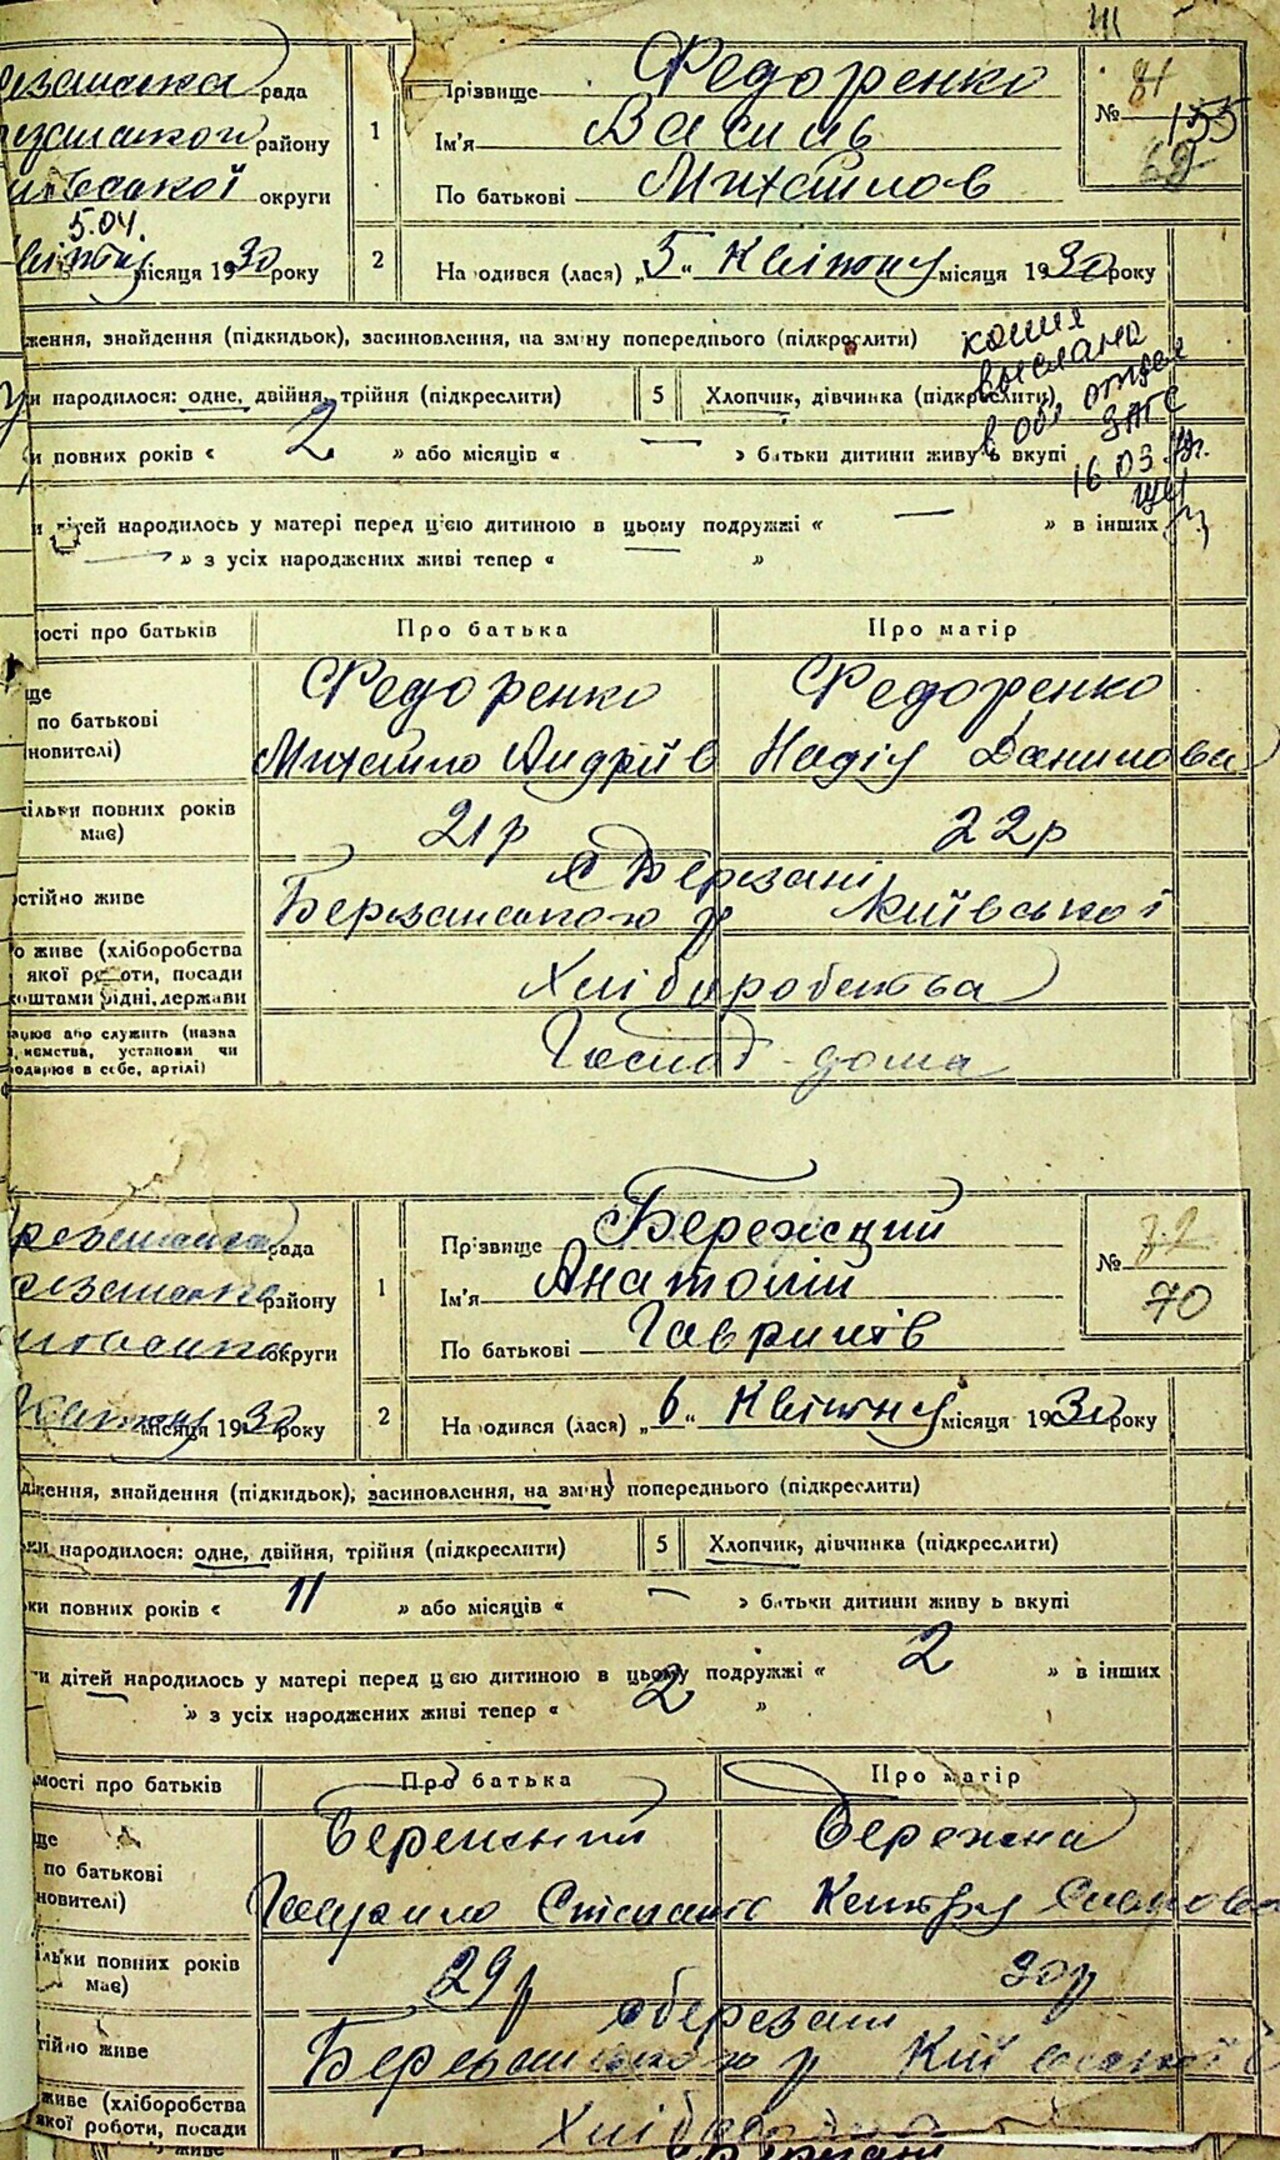 рада
району
округи
5.04.
місяця 1930 року
1
Прізвище Федоренко
Ім'я Василь
По батькові Михайлов
№ 81
155
69
2
Народився (лася) „5“ Квітню місяця 1930 року
ження, знайдення (підкидьок), засиновлення, на зміну попереднього (підкреслити)
копия
выслана
в обл отдел
ЗАГС
16.03
и народилося: одне, двійня, трійня (підкреслити)
5
Хлопчик, дівчинка (підкреслити)
и повних років « 2 » або місяців « — » батьки дитини живуть вкупі
и дітей народилось у матері перед цією дитиною в цьому подружжі « — » в інших
— » з усіх народжених живі тепер « — »
ості про батьків
Про батька
Про матір
ще
по батькові
новителі)
Федоренко
Михайло Андріїв
Федоренко
Надія Данилова
ільки повних років
має)
21 р
22 р
остійно живе
с Березані
Березанського р Київської
о живе (хліборобства
якої роботи, посади
коштами рідні, держави
Хліборобства
ацює або служить (назва
, иємства, установи чи
одарює в себе, артілі)
Господ дома
рада
району
округи
місяця 1930 року
1
Прізвище Бережний
Ім'я Анатолій
По батькові Гаврилів
№
70
2
Народився (лася) „6“ Квітню місяця 1930 року
дження, знайдення (підкидьок), засиновлення, на зміну попереднього (підкреслити)
ьки народилося: одне, двійня, трійня (підкреслити)
5
Хлопчик, дівчинка (підкреслити)
ьки повних років « 11 » або місяців « — » батьки дитини живуть вкупі
ти дітей народилось у матері перед цією дитиною в цьому подружжі « 2 » в інших
— » з усіх народжених живі тепер « 2 »
мості про батьків
Про батька
Про матір
ще
по батькові
новителі)
Бережний
Гаврило Степанів
Бережна
ільки повних років
має)
29 р
30 р
тійно живе
с Березані
Березанського р Київської
живе (хліборобства
якої роботи, посади